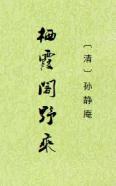 栖霞阁野乘
〔清〕孙静庵